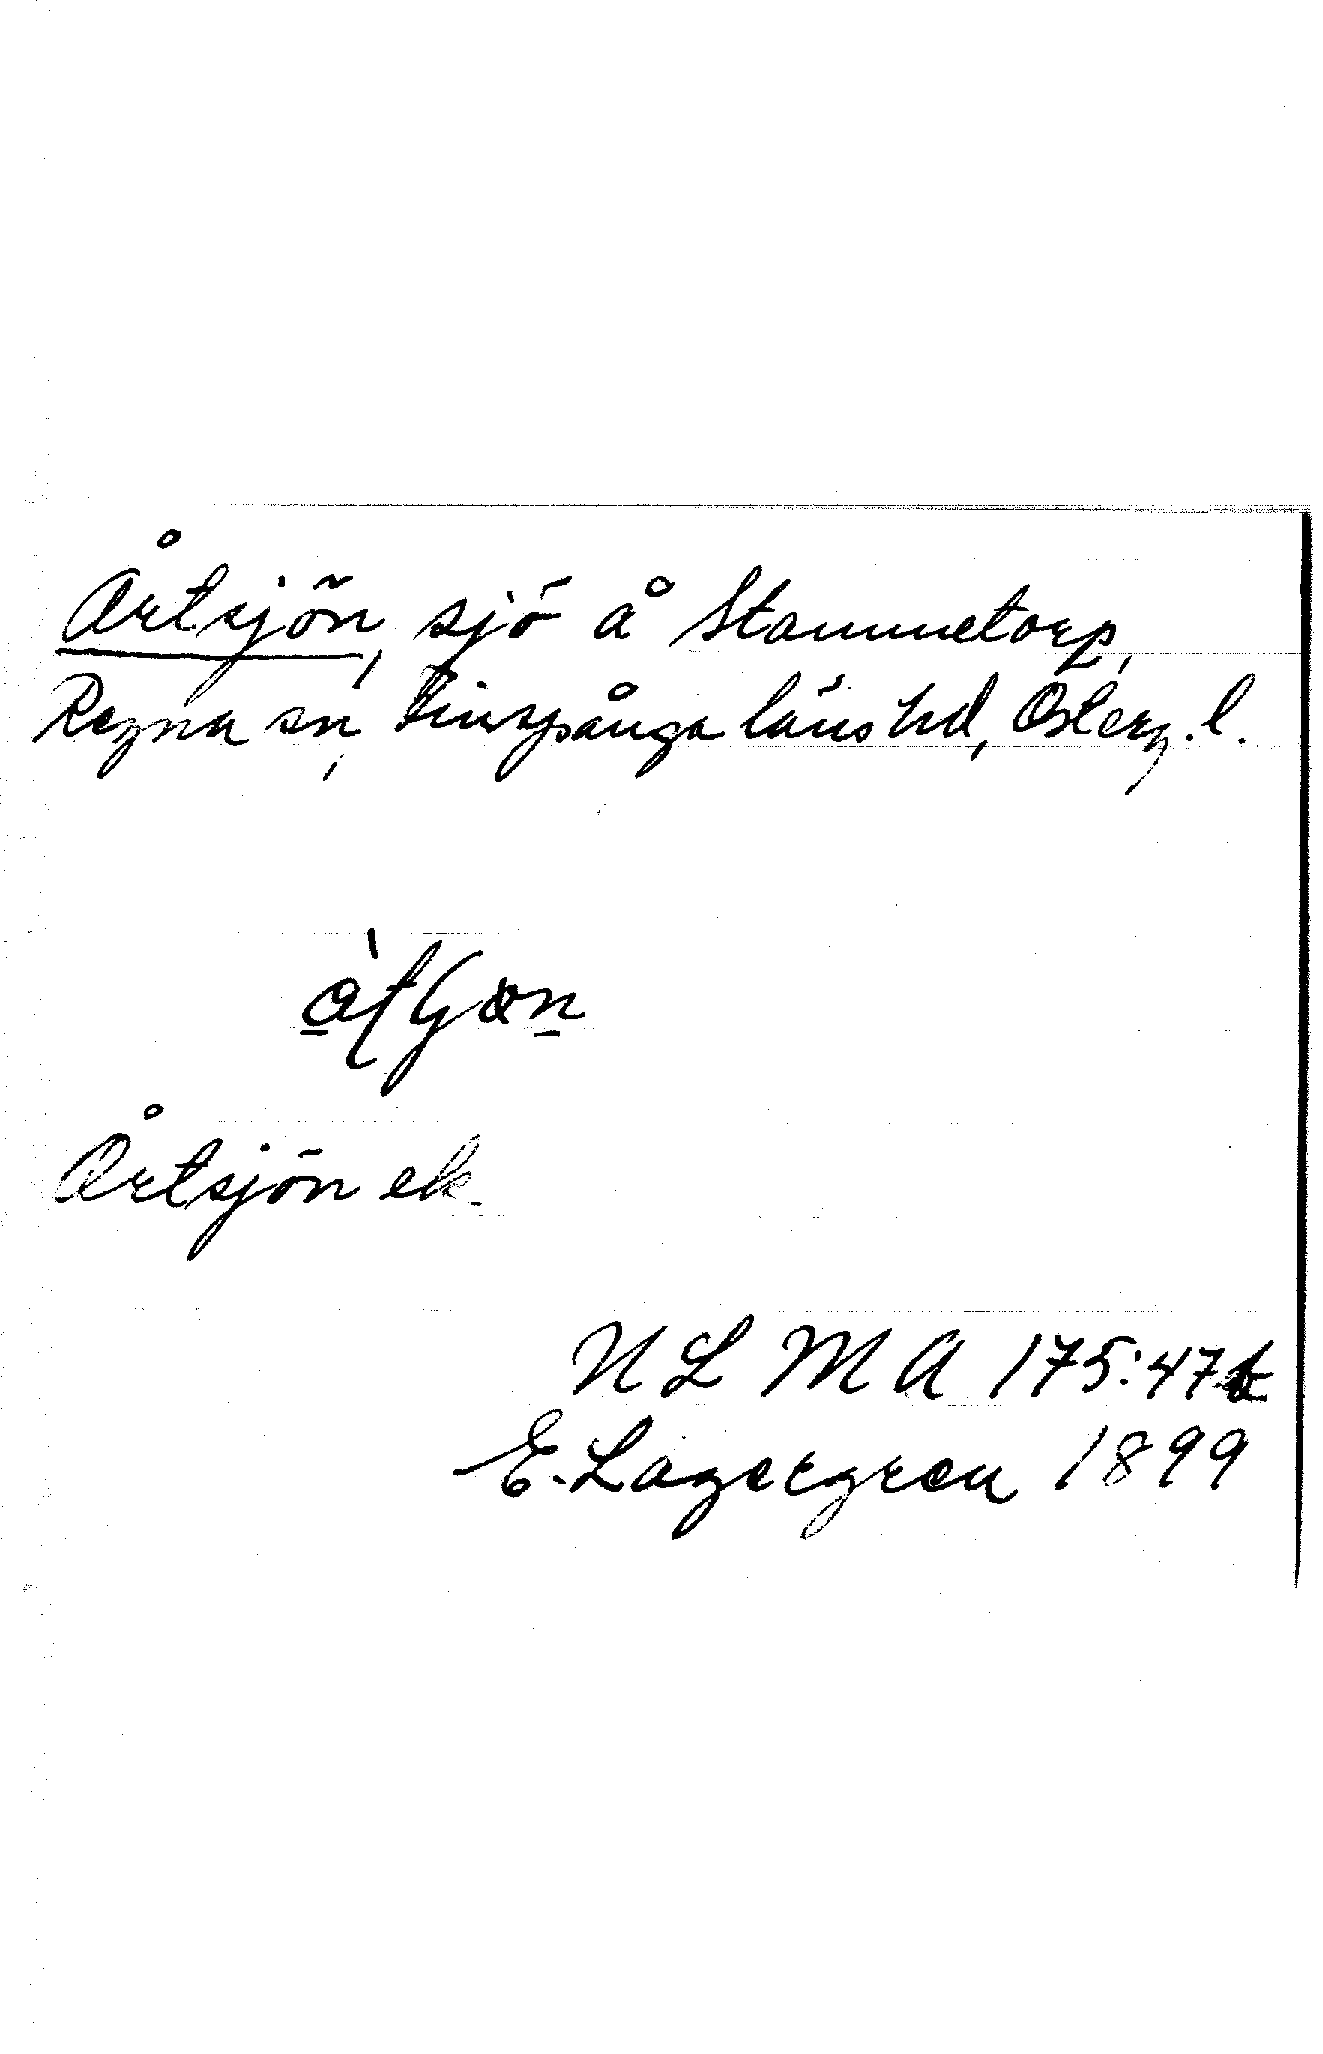 Årtsjön, sjö å Stammetorp,
Regna sn, Finspånga läns hd, Österg. l.
Årtsjön ek.
N L M A 175:47b
E. Lagergren 1899